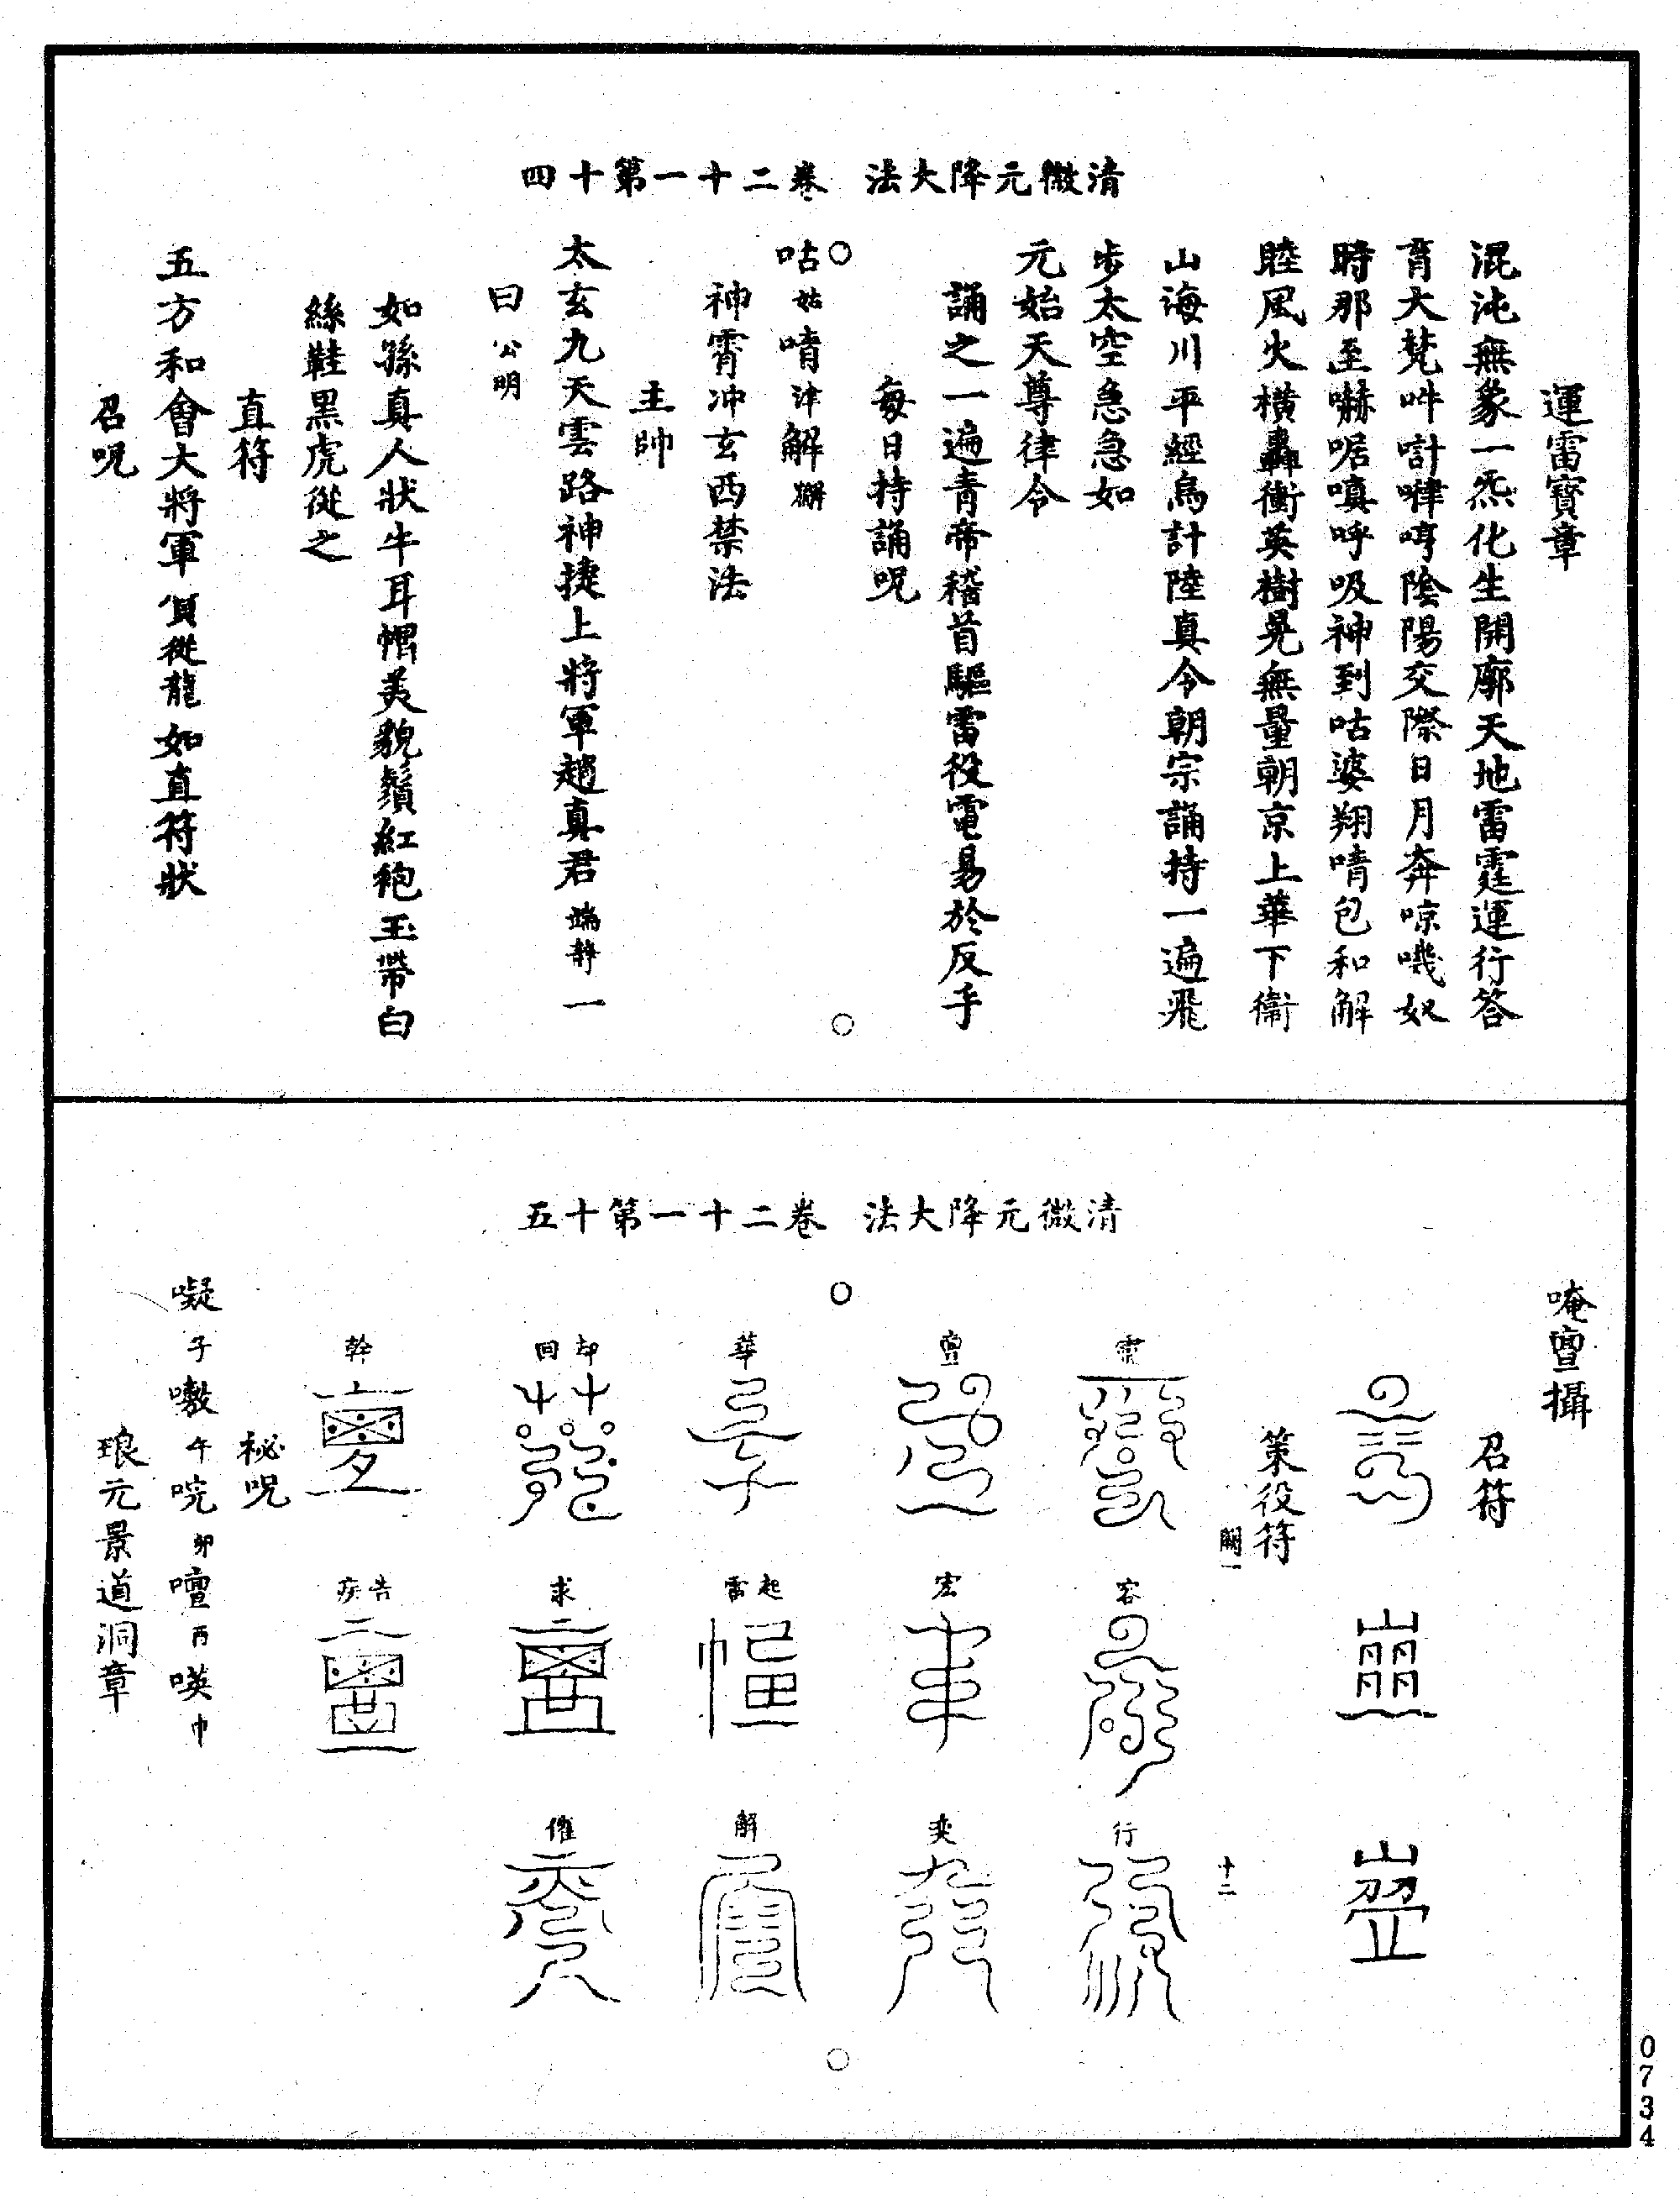 清微元降大法　卷二十一第十四
運雷寶章
混沌無象一炁化生開廓天地雷霆運行答
育大梵吽㖕嗶哼陰陽交際日月奔㖫嘰奴
時那至嚇啹嗔呼吸神到咕婆翔唷包和解
睦風火橫轟衝英樹晃無量朝京上華下衞
山海川平經烏計陸真令朝宗誦持一遍飛
步太空急急如
元始天尊律令
誦之一遍青帝稽首驅雷役電易於反乎
每日持誦呪
咕姑唷津解獬
神霄冲玄西禁法
主帥
太玄九天雲路神捷上將軍趙真君端靜一
曰公明
如孫真人狀牛耳帽美貌鬚紅袍玉帶白
絲鞋黑虎從之
直符
五方和會大將軍貟從龍如直符狀
召呪
清微元降大法　卷二十一第十五
唵亶攝
召符
策役符闕一　十二
霐　容　行
亶　宏　奕
華　起雷　解
却回　求　催
幹　告疾
秘呪
嶷子噭午唍卯嚪丙㗲巾
琅元景道洞章
0734